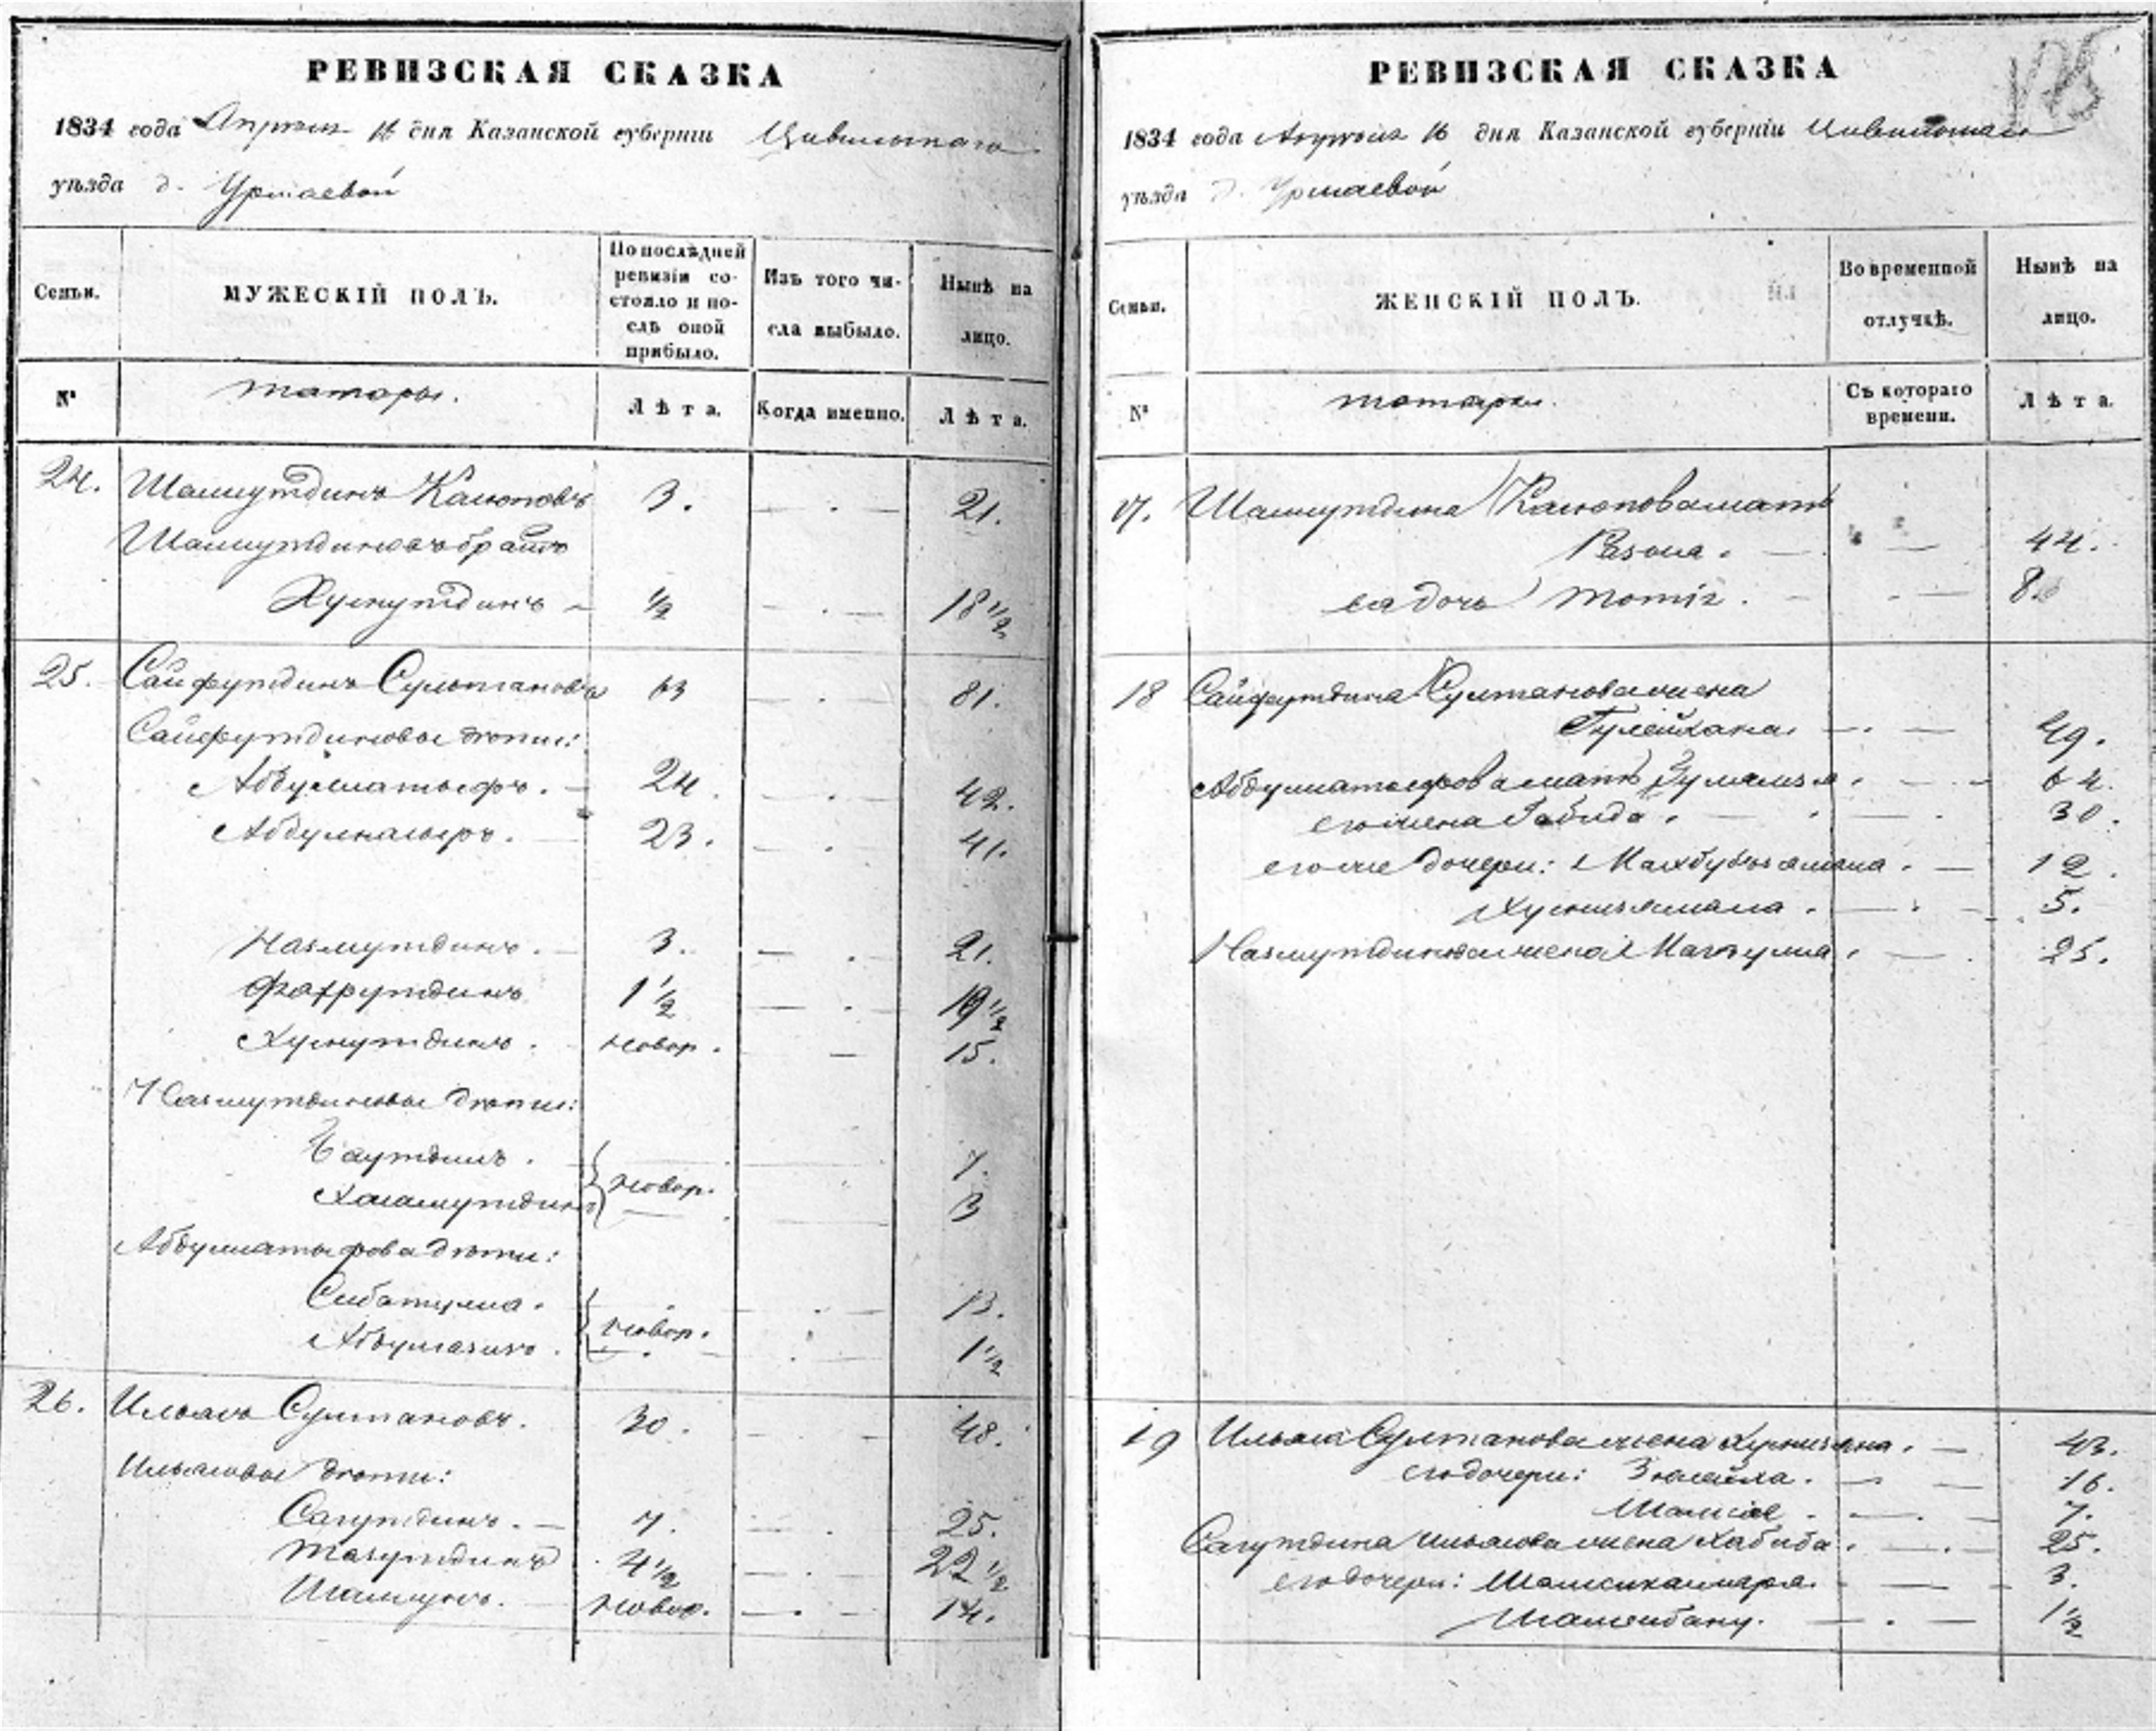 РЕВИЗСКАЯ СКАЗКА
1834 года Апреля 16 дня Казанской губерніи Цивильскаго
уѣзда д. Урмаевой
Семьи.
МУЖЕСКІЙ ПОЛЪ.
По послѣдней ревизіи со-
стояло и по-
слѣ оной
прибыло.
Изъ того чи-
сла выбыло.
Нынѣ на
лицо.
№
татары.
Лѣта.
Когда именно.
Лѣта.
24. Шамсутдинъ Каюповъ 3. — . — 21.
Шамсутдиновъ братъ
Хуснутдинъ — ½ — . — 18 ½
25. Сайфутдинъ Султановъ 63 — . — 81.
Сайфутдиновы дѣти:
Абдуллатыфъ. — 24. — . — 42.
Абдулнасыръ. — 23. — . — 41.
Назмутдинъ. — 3. — . — 21.
Фахрутдинъ 1 ½ — . — 19 ½
Хуснутдинъ. новор. — 15.
Назмутдиновы дѣти:
Баутдинъ. 7.
Хисамутдинъ новор. 3
Абдуллатыфова дѣти:
Сибатулла. 13.
Абдулазизъ. новор. 1 ½
26. Ильясъ Султановъ. 30. 48.
Ильясовы дѣти:
Сагутдинъ. — 7. — . 25.
Тазутдинъ 4 ½ — . — 22 ½
Шамсунъ. — новор. — . — 14.
РЕВИЗСКАЯ СКАЗКА
1834 года Апреля 16 дня Казанской губерніи Цивильскаго
уѣзда д. Урмаевой
Семьи.
ЖЕНСКІЙ ПОЛЪ.
Во временной
отлучкѣ.
Нынѣ на
лицо.
№
татарки.
Съ котораго
времени.
Лѣта.
17. Шамсутдина Каюпова мать
44.
ея дочь 8.
18 Сайфутдина Султанова жена
49.
Абдуллатыфова мать 64.
его жена Габида. 30.
его же дочери: 12.
5.
Назмутдинова жена 25.
19 Ильяса Султанова жена 43.
его дочери: Зюлейха. 16.
7.
Сагутдина Ильясова жена Хабиба. 25.
его дочери: 3.
Шамсибану. 1 ½